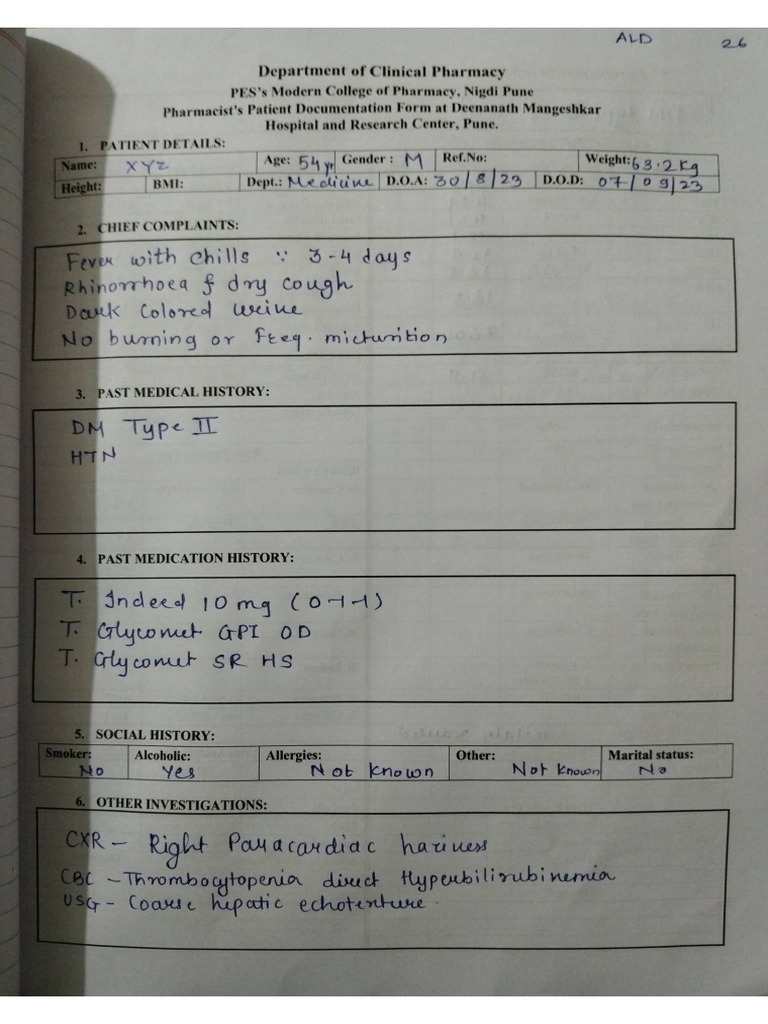 ALD 26
Department of Clinical Pharmacy
PES's Modern College of Pharmacy, Nigdi Pune
Pharmacist's Patient Documentation Form at Deenanath Mangeshkar
Hospital and Research Center, Pune.
1. PATIENT DETAILS:
Name: XYZ Age: 54 yr Gender : M Ref.No: Weight: 63.2 kg
Height: BMI: Dept.: Medicine D.O.A: 30/8/23 D.O.D: 07/09/23
2. CHIEF COMPLAINTS:
Fever with chills ∵ 3-4 days
Rhinorrhoea & dry cough
Dark Colored urine
No burning or freq. micturition
3. PAST MEDICAL HISTORY:
DM Type II
HTN
4. PAST MEDICATION HISTORY:
T. Indeed 10 mg (0-1-1)
T. Glycomet GP1 OD
T. Glycomet SR HS
5. SOCIAL HISTORY:
Smoker: Alcoholic: Allergies: Other: Marital status:
No Yes Not known Not known No
6. OTHER INVESTIGATIONS:
CXR - Right Paracardiac hariness
CBC - Thrombocytopenia direct Hyperbilirubinemia
USG - Coarse hepatic echotenture.